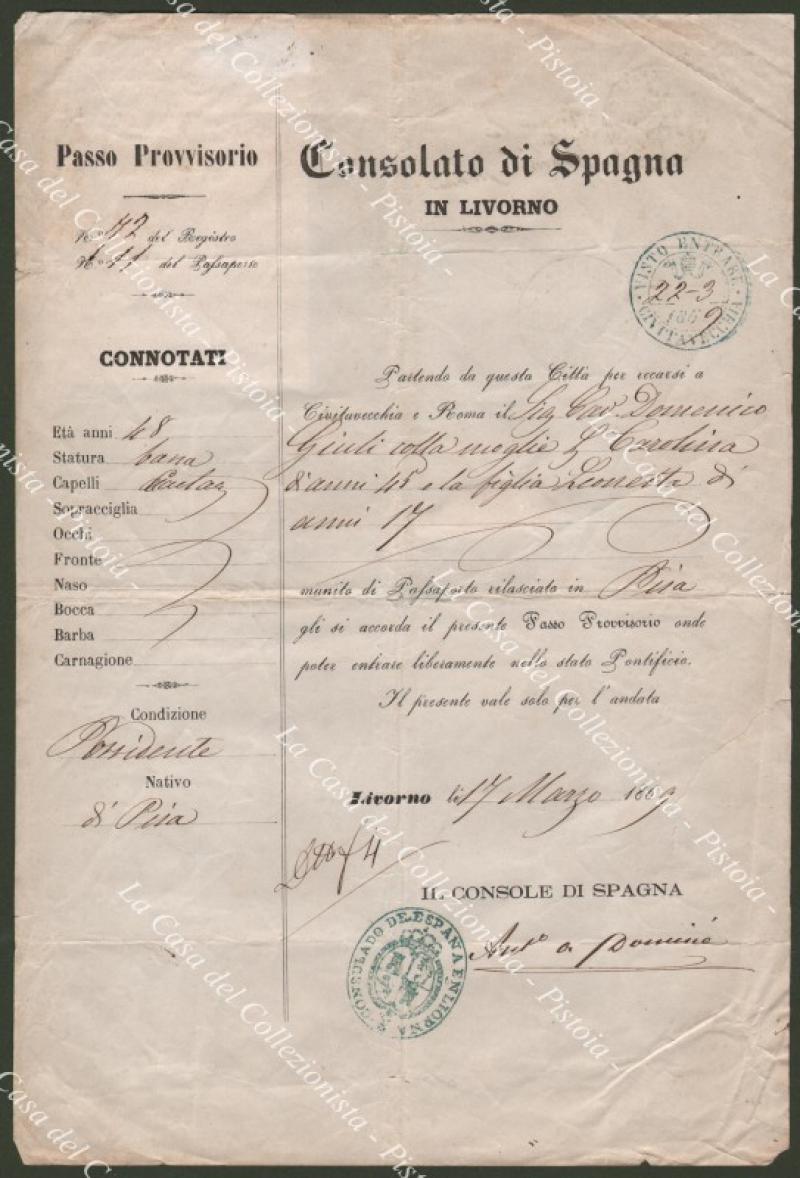 Passo Provvisorio
N.º 42 del Registro
N.º 11 del Passaporto
CONNOTATI
Età anni 48
Statura bassa
Capelli
Sopracciglia
Occhi
Fronte
Naso
Bocca
Barba
Carnagione
Condizione
Possidente
Nativo
di Pisa
Consolato di Spagna
IN LIVORNO
VISTO ENTRARE
22-3
1869
CIVITAVECCHIA
Partendo da questa Città per recarsi a
Civitavecchia e Roma il Sig. Cav. Domenico
Giuli colla moglie Carolina
di anni 45 e la figlia di
anni 17
munito di Passaporto rilasciato in Pisa
gli si accorda il presente Passo Provvisorio onde
poter entrare liberamente nello stato Pontificio.
Il presente vale solo per l'andata
Livorno li 17 Marzo 1869
IL CONSOLE DI SPAGNA
Ant.º
CONSULADO DE ESPAÑA EN LIORNA
La Casa del Collezionista - Pistoia -